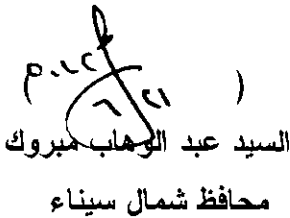 ( )
السيد عبد الوهاب مبروك
محافظ شمال سيناء